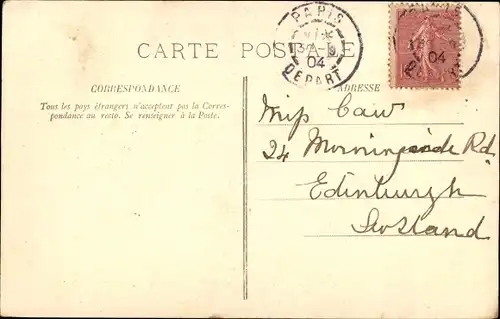 PARIS
04
DEPART
04
CARTE POSTALE
CORRESPONDANCE
Tous les pays étrangers n'acceptent pas la Corres-
pondance au recto. Se renseigner à la Poste.
ADRESSE
Miss Caw
24 Morningside Rd
Edinburgh
Scotland